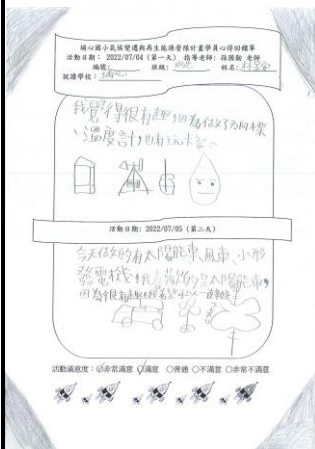 埔心國小氣候變遷與再生能源營隊計畫學員心得回饋單
活動日期: 2022/07/04 (第一天) 指導老師: 孫國勛 老師
編號: 班級: 姓名:
就讀學校: 埔心
我覺得很有趣,因為做了方向標
、溫度計,也有玩卡
活動日期: 2022/07/05 (第二天)
今天做的有太陽能車、風車、小形
發電機,我喜歡的是太陽能車,
因為很有趣
活動滿意度: ○非常滿意 ○滿意 ○普通 ○不滿意 ○非常不滿意